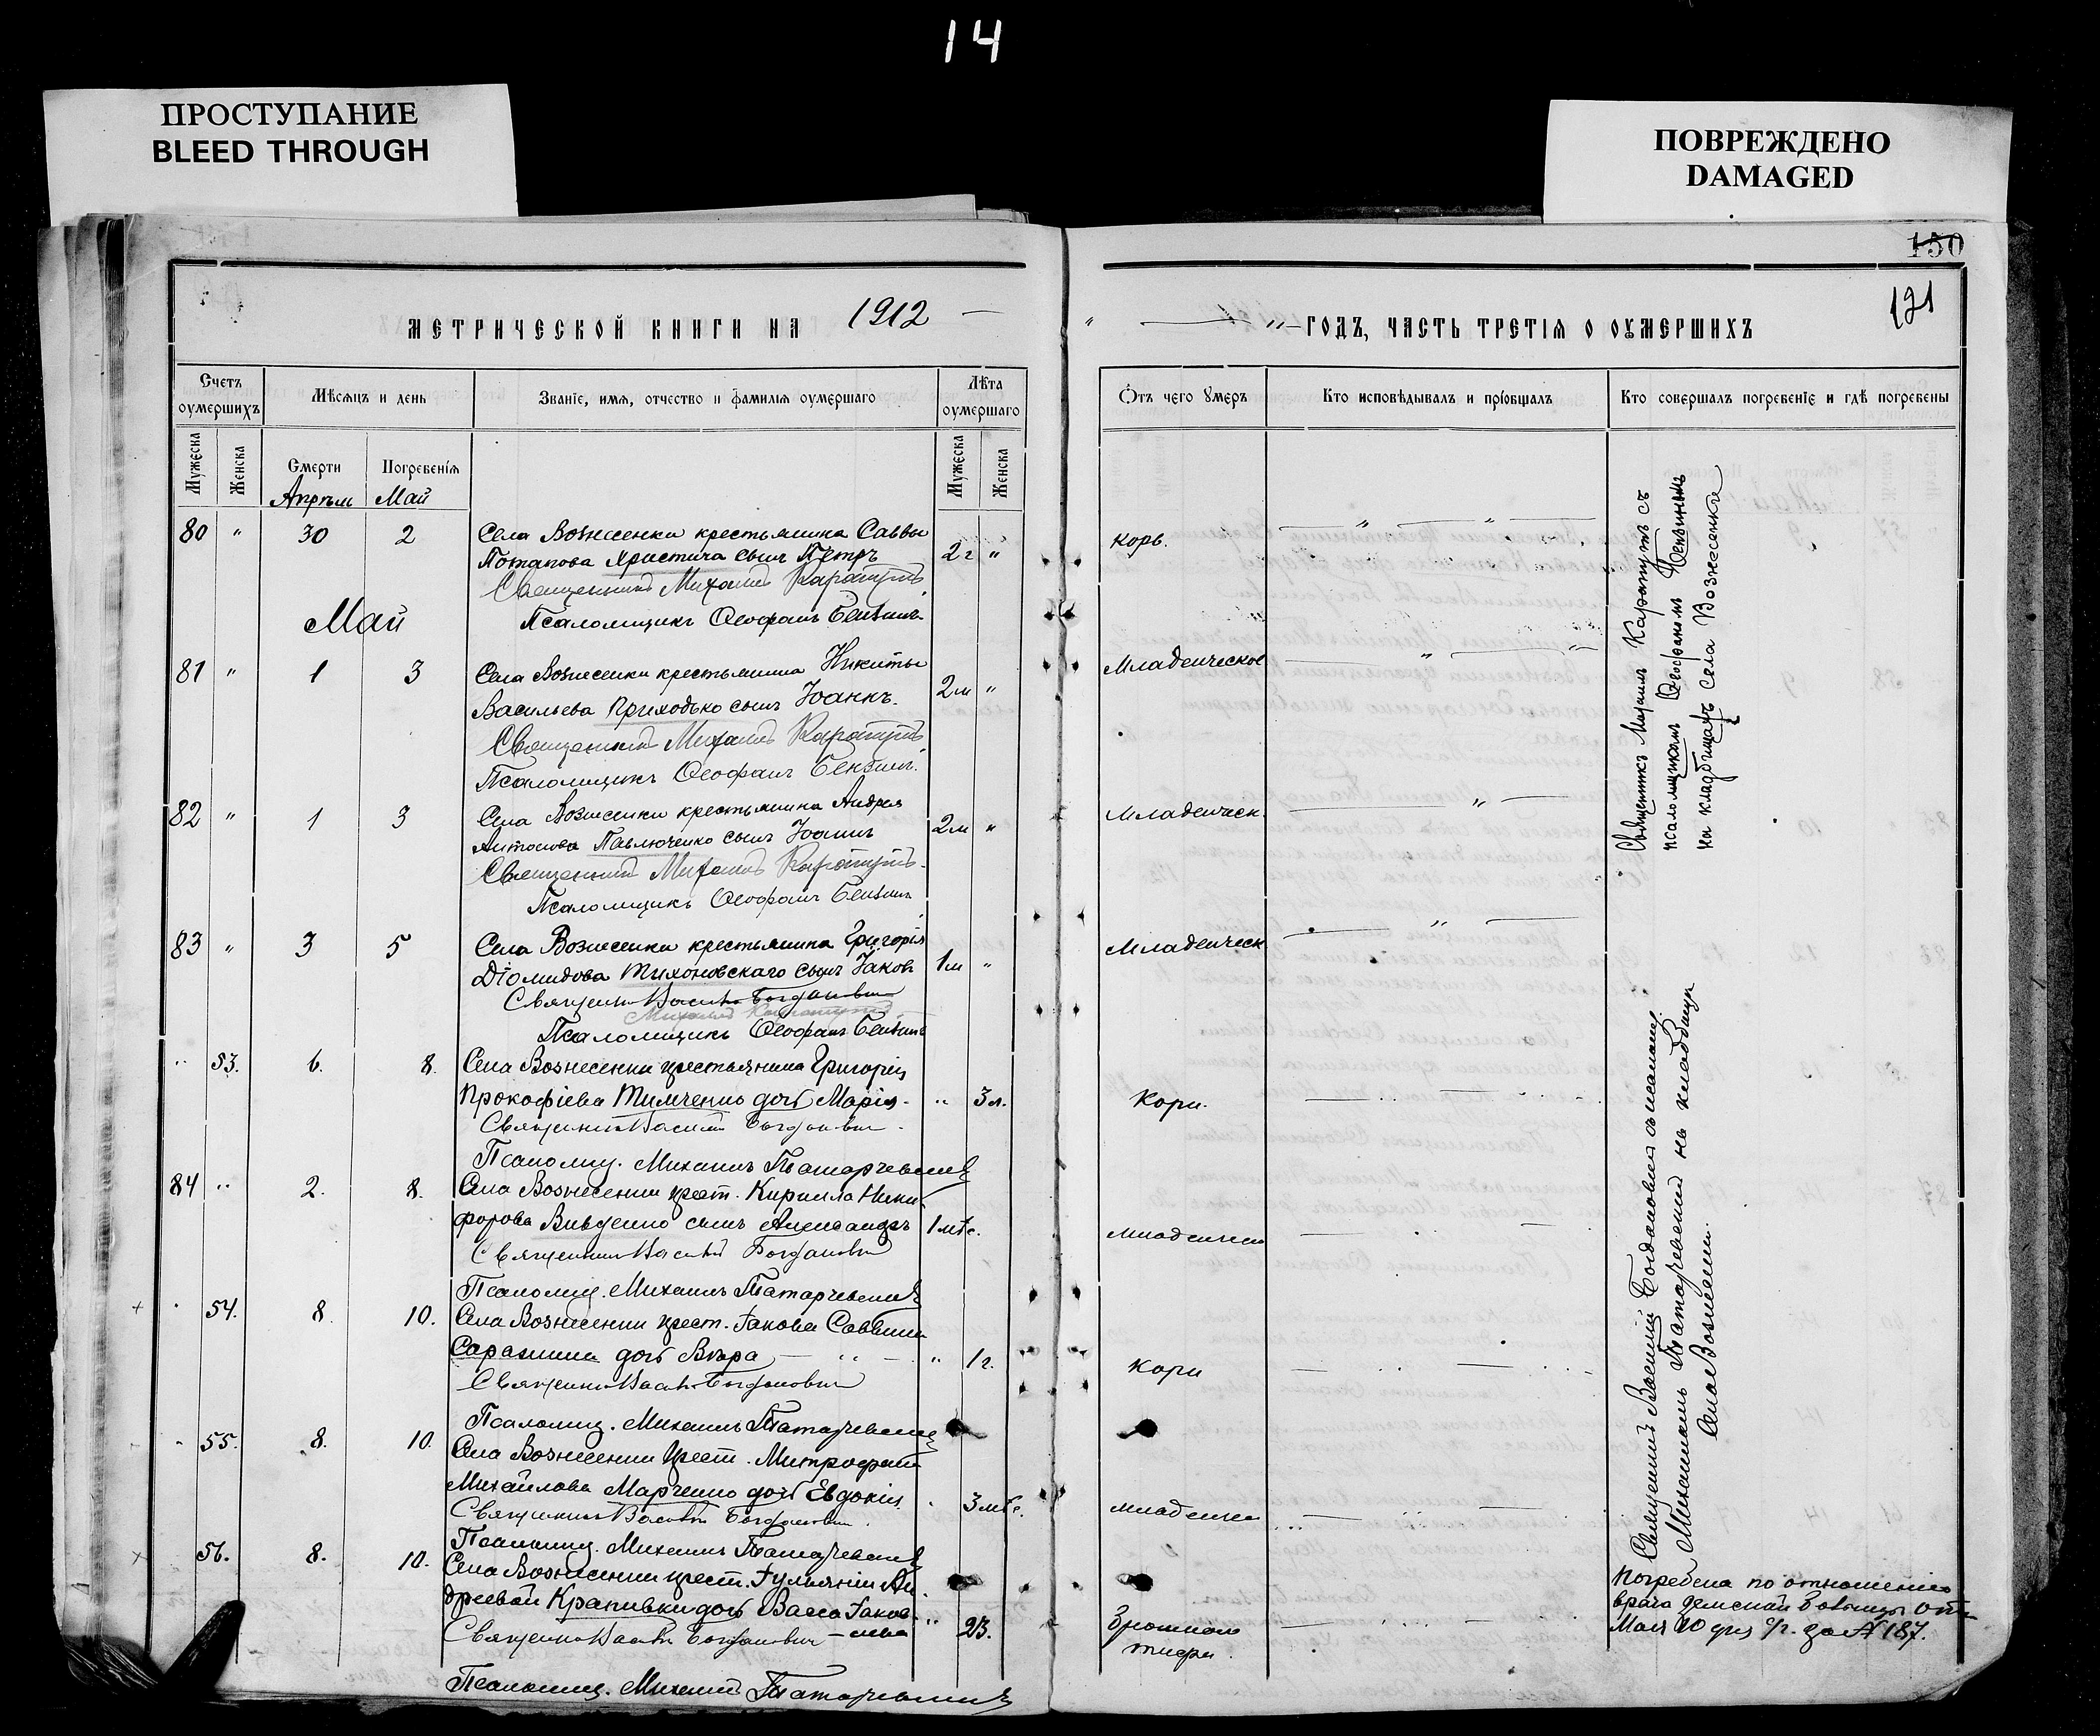 14
ПРОСТУПАНИЕ
BLEED THROUGH
ПОВРЕЖДЕНО
DAMAGED
150
121
МЕТРИЧЕСКОЙ КНИГИ НА 1912
ГОДЪ, ЧАСТЬ ТРЕТІЯ О ОУМЕРШИХЪ
Счетъ оумершихъ
Мѣсяцъ и день
Званіе, имя, отчество и фамилія оумершаго
Лѣта оумершаго
Отъ чего умеръ
Кто исповѣдывалъ и пріобщалъ
Кто совершалъ погребеніе и гдѣ погребены
Мужеска
Женска
Смерти
Погребенія
Мужеска
Женска
Май
80 " 30 2 Села Вознесенки крестьянина Саввы
Потапова Христича сынъ Петръ 2 г " корь.
Священникъ Михаилъ Карапутъ
Май
Псаломщикъ Ѳеофанъ
81 " 1 3 Села Вознесенки крестьянина Никиты
Васильева Приходько сынъ Іоаннъ. 2 м " Младенческое
Священникъ Михаилъ Карапутъ
Псаломщикъ Ѳеофанъ
82 " 1 3 Села Вознесенки крестьянина Андрея
Антонова Павлюченко сынъ Іоаннъ 2 м " Младенческ.
Священникъ Михаилъ Карапутъ
Псаломщикъ Ѳеофанъ
83 " 3 5 Села Вознесенки крестьянина Григорія
Діомидова Тихоновскаго сынъ Іаковъ 1 м " Младенческ.
Священникъ Василій Богдановичъ
Михаилъ Карапутъ
Псаломщикъ Ѳеофанъ
" 53. 6. 8. Села Вознесенки крестьянина Григорія
Прокофіева Тимченко дочь Марія. " 3 л. Кори.
Священникъ Василій Богдановичъ
Псаломщ. Михаилъ Татаревскій
84 " 2. 8. Села Вознесенки крест. Кирилла Ники-
форова Вивденко сынъ Александръ 1 мѣс.
Священникъ Василій Богдановичъ
Псаломщ. Михаилъ Татаревскій
54. 8. 10. Села Вознесенки крест. Іакова Саввина
дочь Вѣра " 1 г. кори
Священникъ Василій Богдановичъ
Псаломщ. Михаилъ Татаревскій
55. 8. 10. Села Вознесенки крест. Митрофана
Михайлова Марченко дочь Евдокія. 3 мѣс.
Священникъ Василій Богдановичъ
Псаломщ. Михаилъ Татаревскій
56. 8. 10. Села Вознесенки крест. Іуліаніи Ан-
дреевой Крапивки дочь Васса Іаков-
лева " 23. Брюшного
тифа.
Священникъ Василій Богдановичъ
Псаломщ. Михаилъ Татаревскій
Священникъ Михаилъ Карапутъ съ
псаломщикомъ Ѳеофаномъ
на кладбищахъ села Вознесенки
Священникъ Василій Богдановичъ съ псаломщ.
Михаиломъ Татаревскимъ на кладбищѣ
Села Вознесенки.
Погребена по отношенію
врача земской больницы отъ
Мая 10 дня с/г. за № 187.